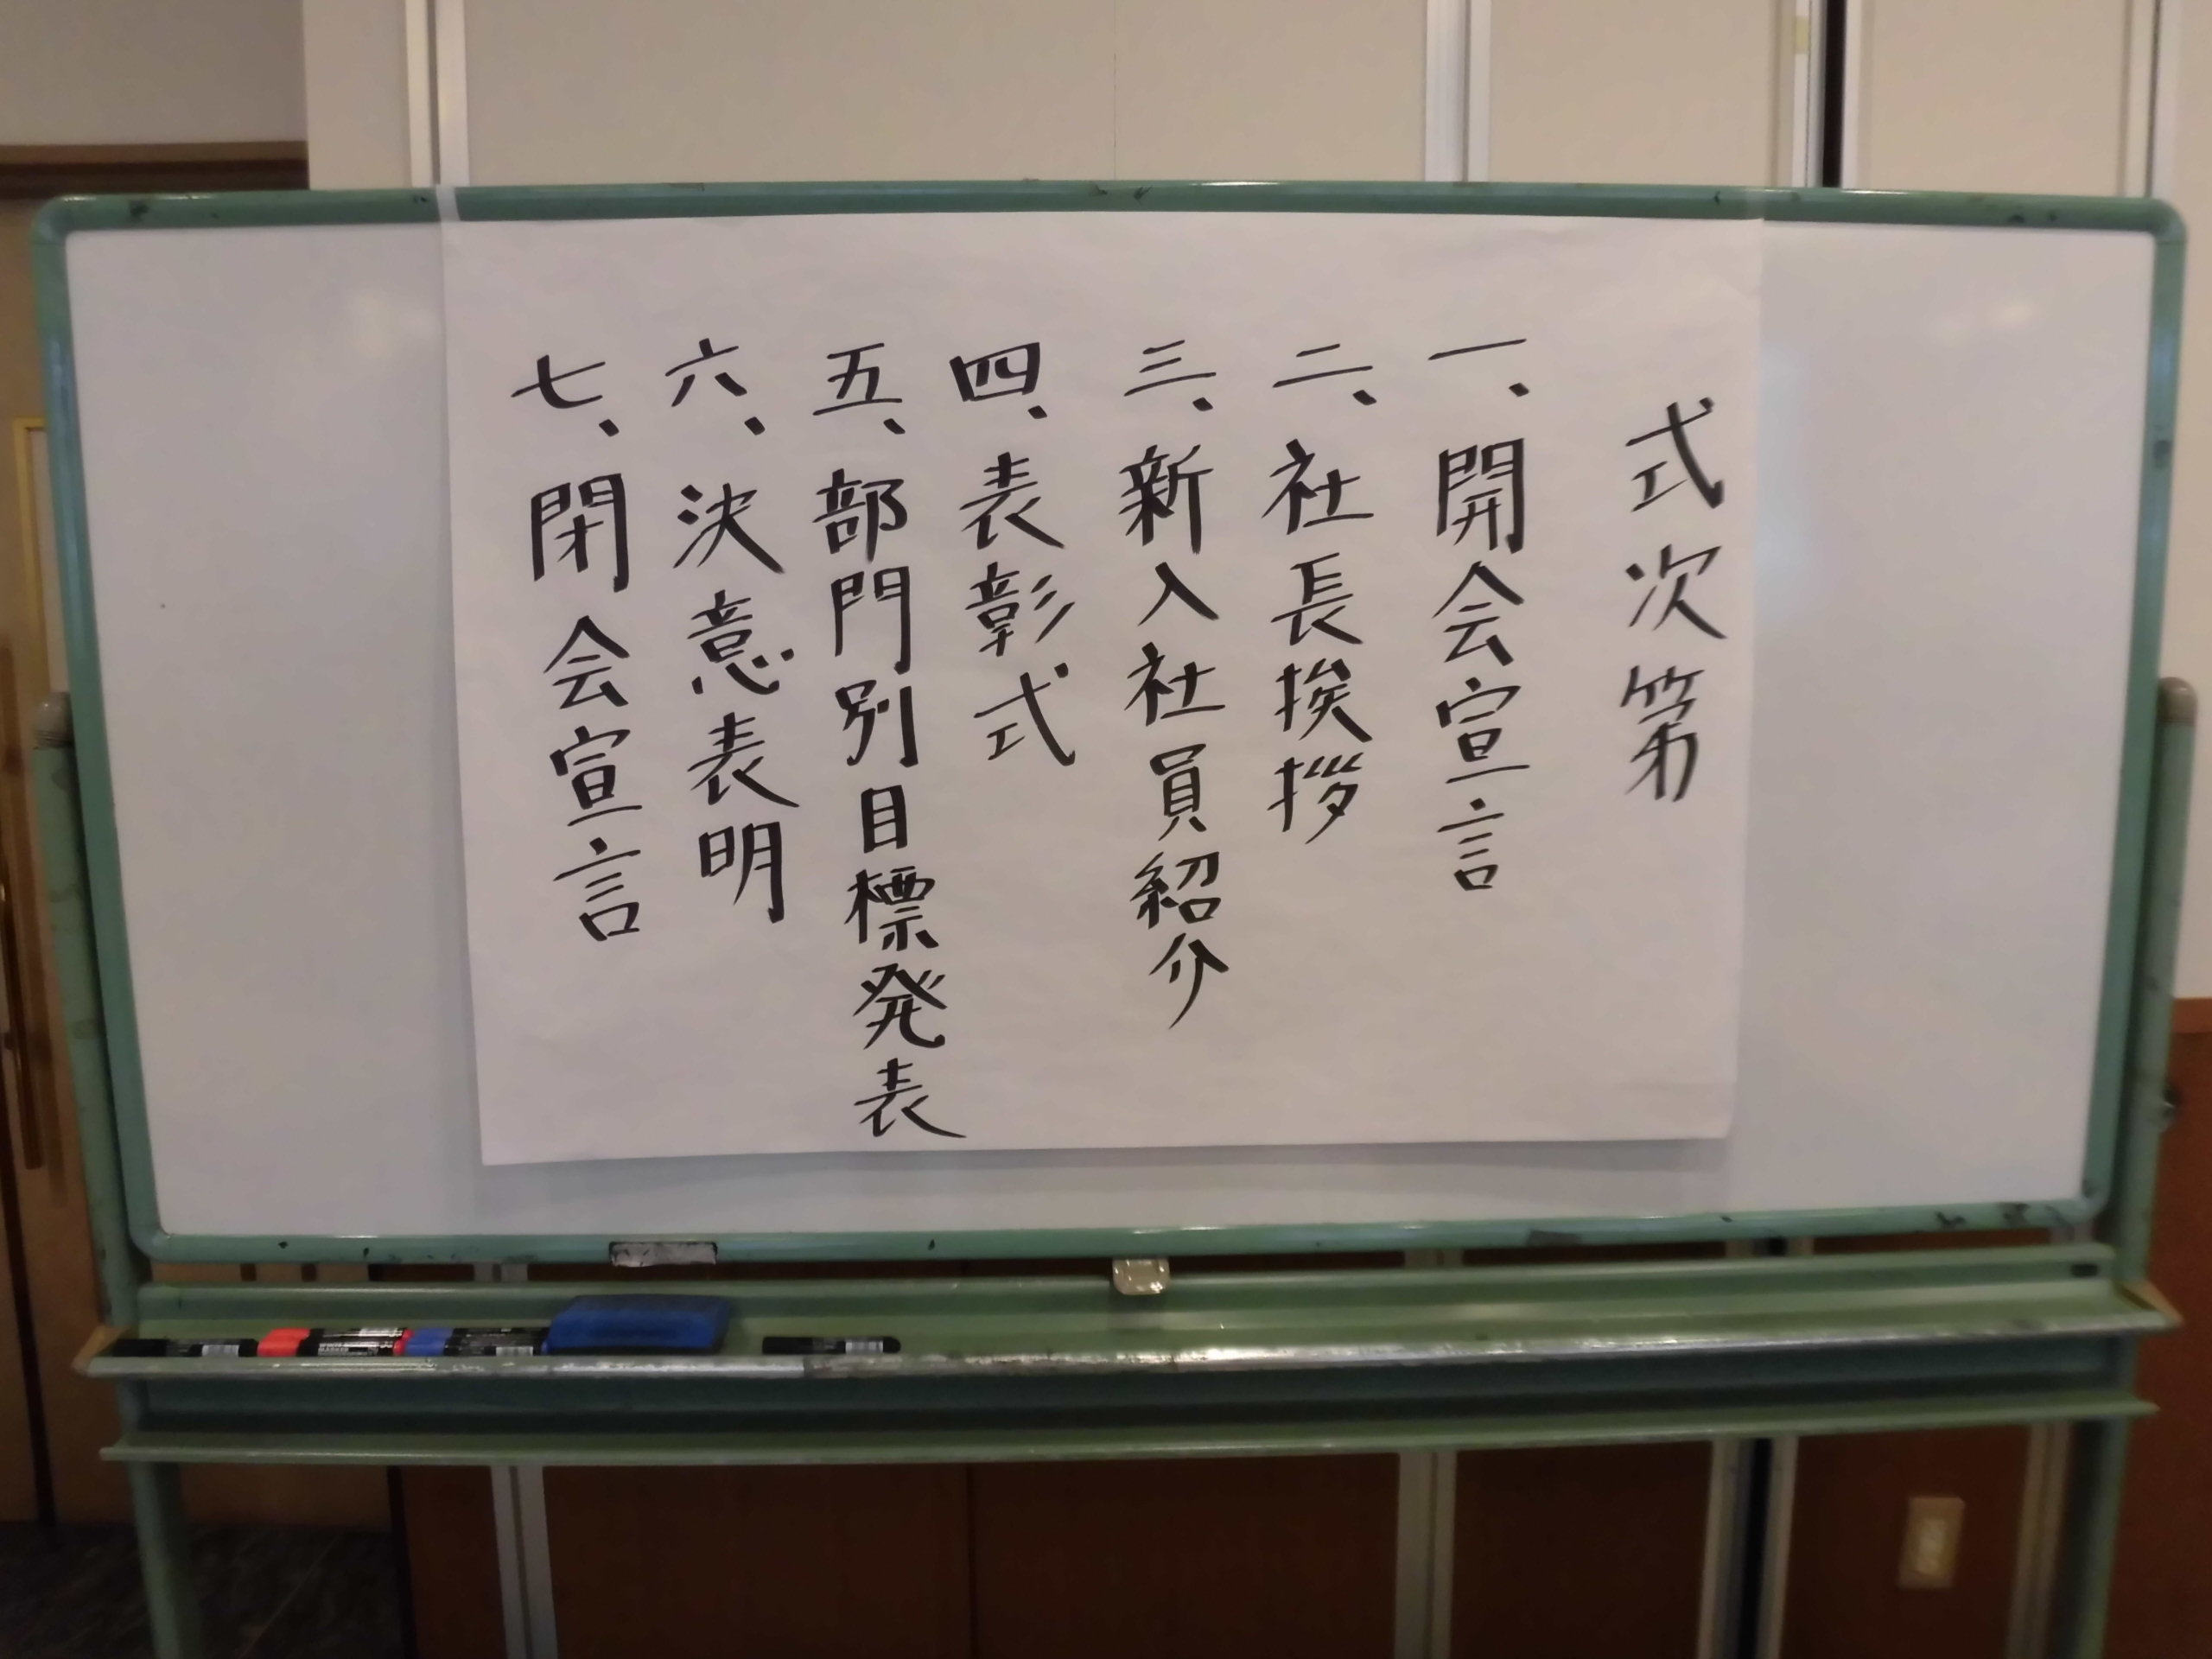 式次第
一、開会宣言
二、社長挨拶
三、新入社員紹介
四、表彰式
五、部門別目標発表
六、決意表明
七、閉会宣言